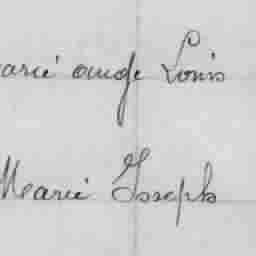 arie ange Louis
Marie Joseph